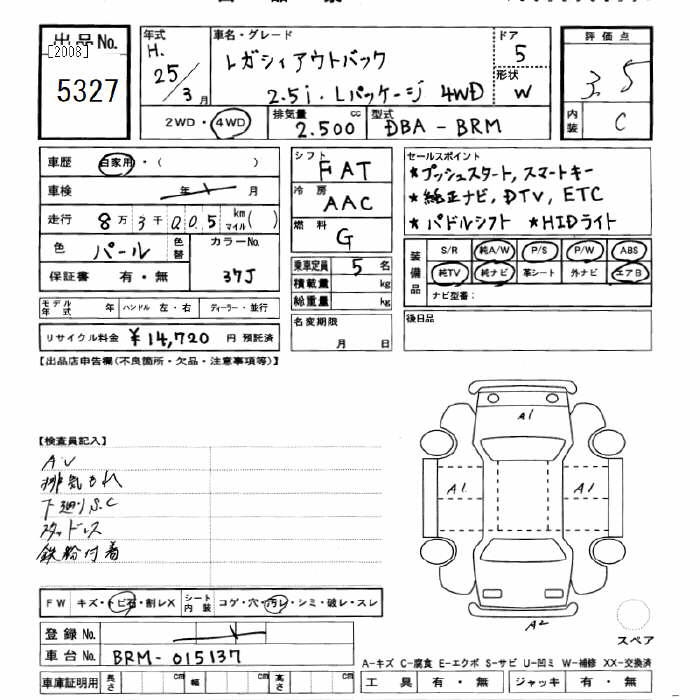 出品No.
[2008]
5327
年式
H.
25/3月
車名・グレード
レガシィアウトバック
2.5i. Lパッケージ 4WD
ドア
5
形状
W
2WD・4WD
排気量
2.500 cc
型式
DBA - BRM
評価点
3.5
内装
C
車歴 自家用・( )
車検 年 月
走行 8万3千005 km マイル( )
色 パール 色替
カラーNo.
37J
保証書 有・無
モデル年式 年 ハンドル 左・右 ディーラー・並行
リサイクル料金 ¥14,720 円 預託済
シフト
FAT
冷房
AAC
燃料
G
乗車定員 5 名
積載量 kg
総重量 kg
名変期限
月 日
セールスポイント
★プッシュスタート, スマートキー
★純正ナビ, DTV, ETC
★パドルシフト ★HIDライト
装備品
S/R 純A/W P/S P/W ABS
純TV 純ナビ 革シート 外ナビ エアB
ナビ型番:
後日品
【出品店申告欄(不良箇所・欠品・注意事項等)】
【検査員記入】
排気もれ
下廻りS.C
スタッドレス
鉄粉付着
A1
A1
A1
A2
スペア
FW キズ・トビ石・割レX シート内装 コゲ・穴・汚レ・シミ・破レ・スレ
登録No.
車台No. BRM-015137
車庫証明用 長さ cm 幅 cm 高さ cm
A-キズ C-腐食 E-エクボ S-サビ U-凹ミ W-補修 XX-交換済
工具 有・無 ジャッキ 有・無